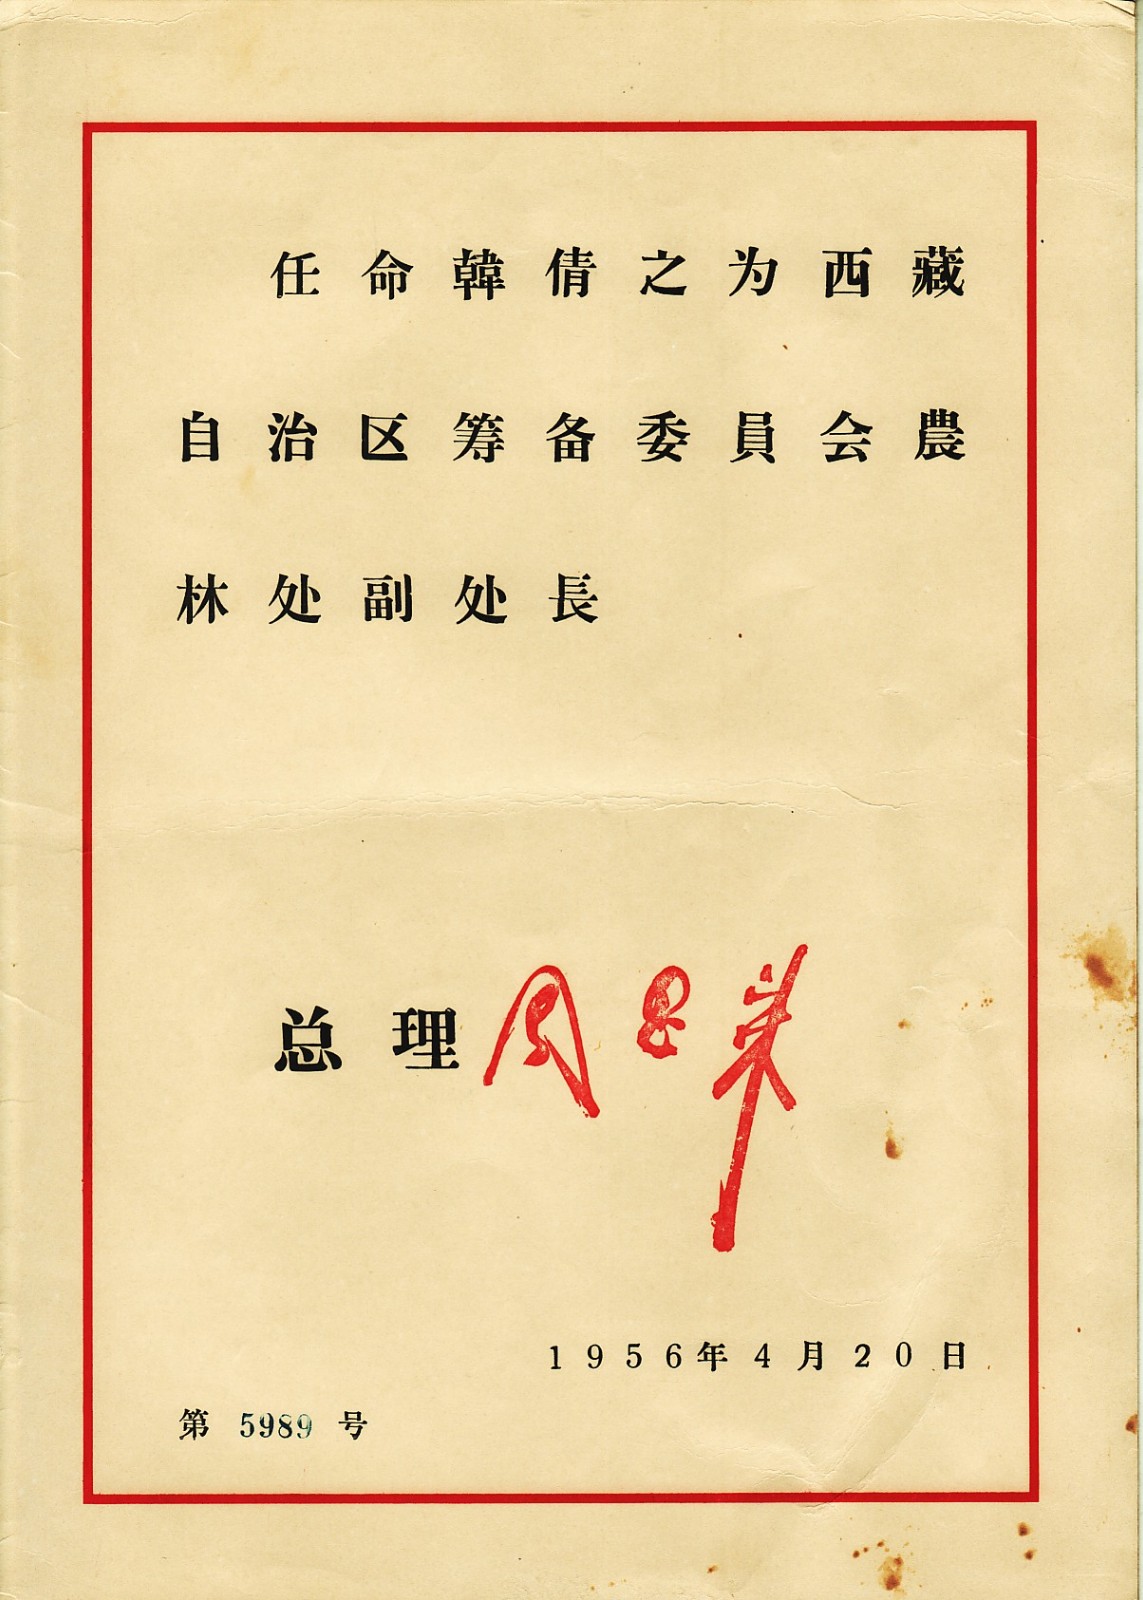 任命韓倩之为西藏
自治区筹备委員会農
林处副处長
总理 周恩来
1956年4月20日
第 5989 号